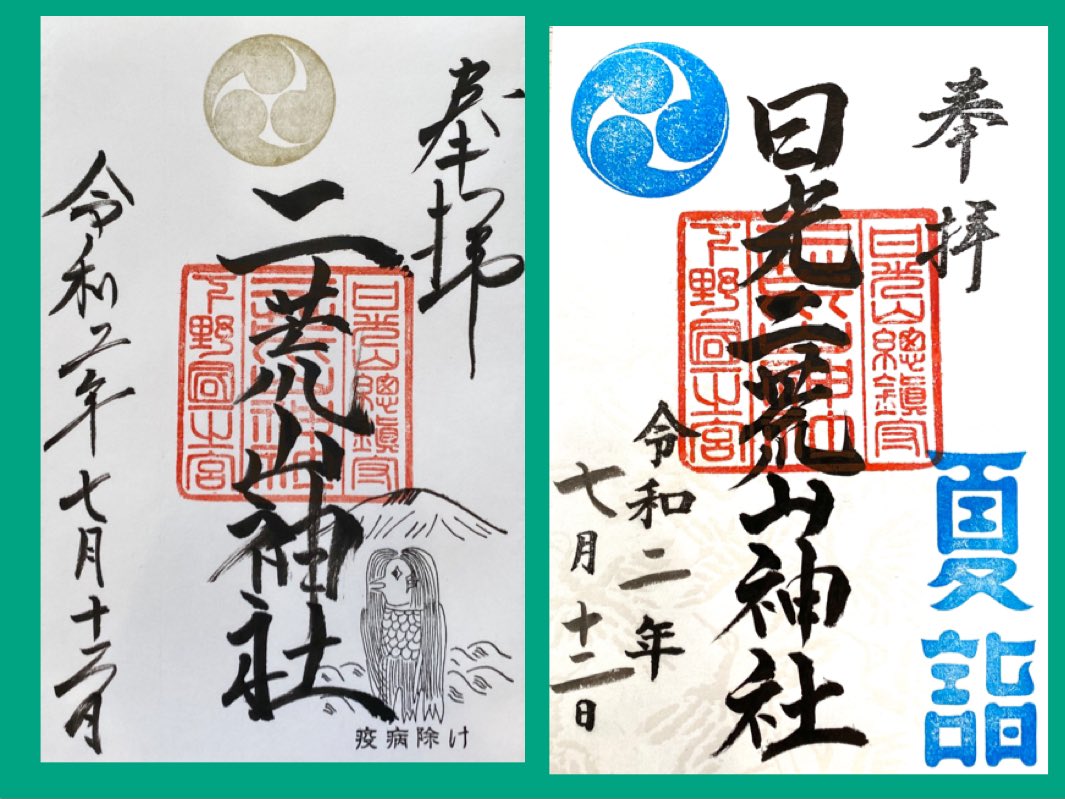 奉拝
二荒山神社
日光山總鎮守
二荒山神社
下野國一之宮
令和二年七月十二日
疫病除け
奉拝
日光二荒山神社
日光山總鎮守
二荒山神社
下野國一之宮
令和二年
七月十二日
夏詣